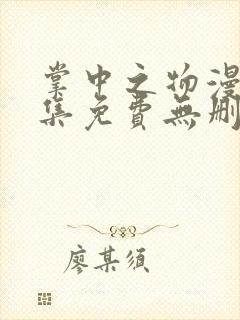 掌中之物漫
集免費無刪
廖某须